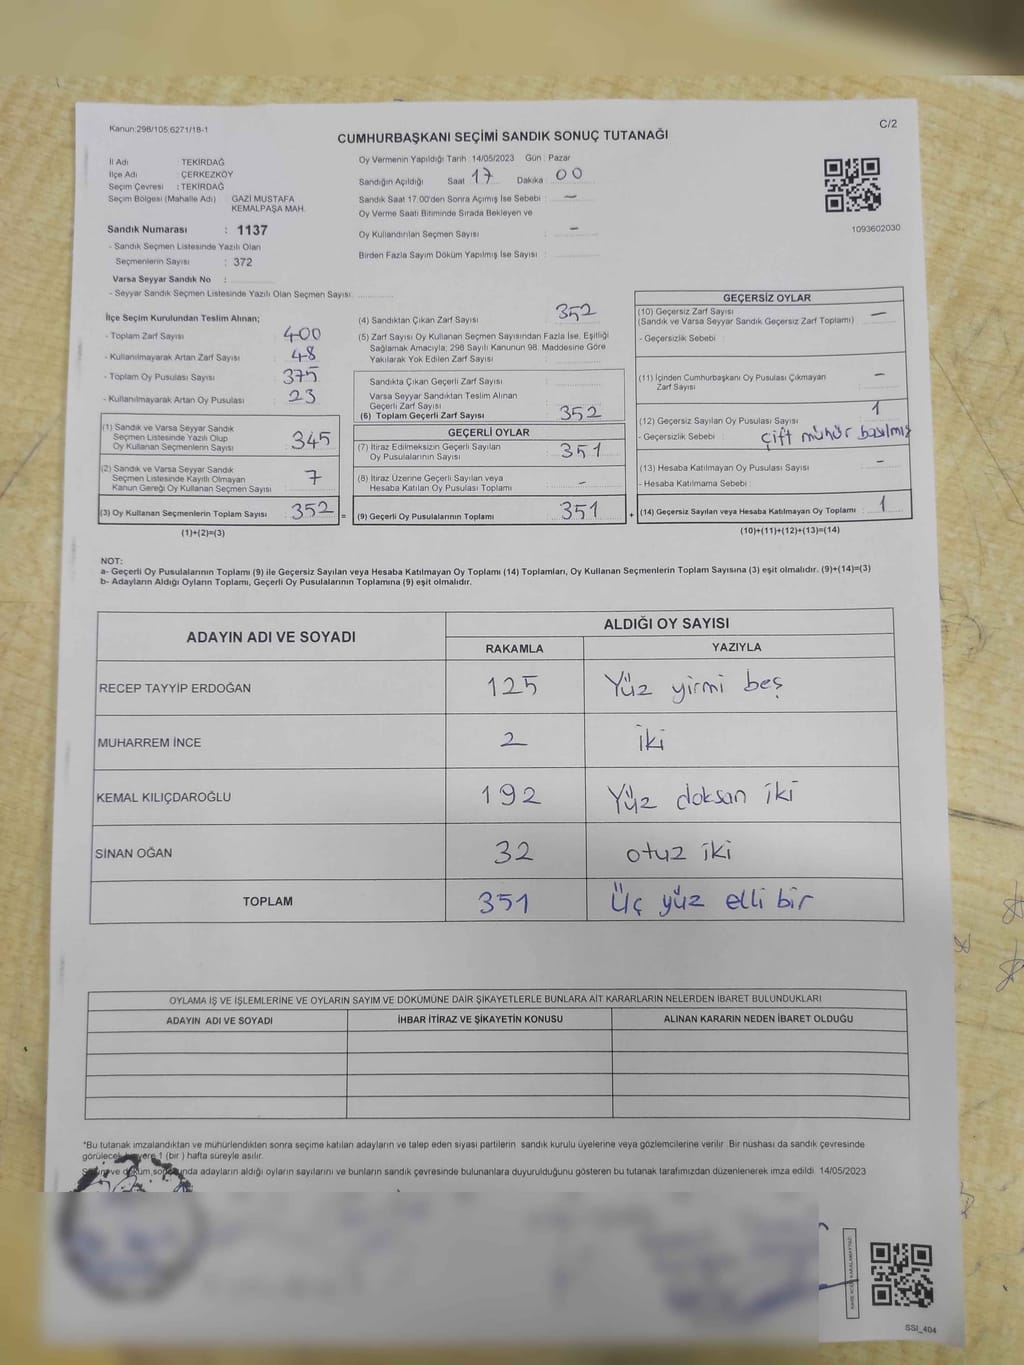 Kanun:298/105.6271/18-1
C/2
CUMHURBAŞKANI SEÇİMİ SANDIK SONUÇ TUTANAĞI
İl Adı TEKİRDAĞ
İlçe Adı : ÇERKEZKÖY
Seçim Çevresi : TEKİRDAĞ
Seçim Bölgesi (Mahalle Adı) GAZİ MUSTAFA
KEMALPAŞA MAH.
Sandık Numarası : 1137
- Sandık Seçmen Listesinde Yazılı Olan
Seçmenlerin Sayısı : 372
Varsa Seyyar Sandık No :
- Seyyar Sandık Seçmen Listesinde Yazılı Olan Seçmen Sayısı:
Oy Vermenin Yapıldığı Tarih : 14/05/2023 Gün : Pazar
Sandığın Açıldığı Saat : 17 Dakika : 00
Sandık Saat 17.00'den Sonra Açımış İse Sebebi : —
Oy Verme Saati Bitiminde Sırada Bekleyen ve
Oy Kullandırılan Seçmen Sayısı : —
Birden Fazla Sayım Döküm Yapılmış İse Sayısı :
1093602030
İlçe Seçim Kurulundan Teslim Alınan;
- Toplam Zarf Sayısı : 400
- Kullanılmayarak Artan Zarf Sayısı : 48
- Toplam Oy Pusulası Sayısı : 375
- Kullanılmayarak Artan Oy Pusulası : 23
(1) Sandık ve Varsa Seyyar Sandık
Seçmen Listesinde Yazılı Olup
Oy Kullanan Seçmenlerin Sayısı : 345
(2) Sandık ve Varsa Seyyar Sandık
Seçmen Listesinde Kayıtlı Olmayan
Kanun Gereği Oy Kullanan Seçmen Sayısı : 7
(3) Oy Kullanan Seçmenlerin Toplam Sayısı : 352 =
(1)+(2)=(3)
(4) Sandıktan Çıkan Zarf Sayısı : 352
(5) Zarf Sayısı Oy Kullanan Seçmen Sayısından Fazla İse, Eşitliği
Sağlamak Amacıyla; 298 Sayılı Kanunun 98. Maddesine Göre
Yakılarak Yok Edilen Zarf Sayısı :
Sandıkta Çıkan Geçerli Zarf Sayısı :
Varsa Seyyar Sandıktan Teslim Alınan
Geçerli Zarf Sayısı :
(6) Toplam Geçerli Zarf Sayısı : 352
GEÇERLİ OYLAR
(7) İtiraz Edilmeksizin Geçerli Sayılan
Oy Pusulalarının Sayısı : 351
(8) İtiraz Üzerine Geçerli Sayılan veya
Hesaba Katılan Oy Pusulası Toplamı : -
(9) Geçerli Oy Pusulalarının Toplamı : 351 +
GEÇERSİZ OYLAR
(10) Geçersiz Zarf Sayısı
(Sandık ve Varsa Seyyar Sandık Geçersiz Zarf Toplamı) : —
- Geçersizlik Sebebi :
(11) İçinden Cumhurbaşkanı Oy Pusulası Çıkmayan
Zarf Sayısı : —
(12) Geçersiz Sayılan Oy Pusulası Sayısı : 1
- Geçersizlik Sebebi : Çift mühür basılmış
(13) Hesaba Katılmayan Oy Pusulası Sayısı : -
- Hesaba Katılmama Sebebi :
(14) Geçersiz Sayılan veya Hesaba Katılmayan Oy Toplamı : 1
(10)+(11)+(12)+(13)=(14)
NOT:
a- Geçerli Oy Pusulalarının Toplamı (9) ile Geçersiz Sayılan veya Hesaba Katılmayan Oy Toplamı (14) Toplamları, Oy Kullanan Seçmenlerin Toplam Sayısına (3) eşit olmalıdır. (9)+(14)=(3)
b- Adayların Aldığı Oyların Toplamı, Geçerli Oy Pusulalarının Toplamına (9) eşit olmalıdır.
ADAYIN ADI VE SOYADI ALDIĞI OY SAYISI
RAKAMLA YAZIYLA
RECEP TAYYİP ERDOĞAN 125 Yüz yirmi beş
MUHARREM İNCE 2 iki
KEMAL KILIÇDAROĞLU 192 Yüz doksan iki
SİNAN OĞAN 32 otuz iki
TOPLAM 351 Üç yüz elli bir
OYLAMA İŞ VE İŞLEMLERİNE VE OYLARIN SAYIM VE DÖKÜMÜNE DAİR ŞİKAYETLERLE BUNLARA AİT KARARLARIN NELERDEN İBARET BULUNDUKLARI
ADAYIN ADI VE SOYADI İHBAR İTİRAZ VE ŞİKAYETİN KONUSU ALINAN KARARIN NEDEN İBARET OLDUĞU
*Bu tutanak imzalandıktan ve mühürlendikten sonra seçime katılan adayların ve talep eden siyasi partilerin sandık kurulu üyelerine veya gözlemcilerine verilir. Bir nüshası da sandık çevresinde
görülecek yere 1 (bir ) hafta süreyle asılır.
ve döküm sonunda adayların aldığı oyların sayılarını ve bunların sandık çevresinde bulunanlara duyurulduğunu gösteren bu tutanak tarafımızdan düzenlenerek imza edildi. 14/05/2023
SSI_404